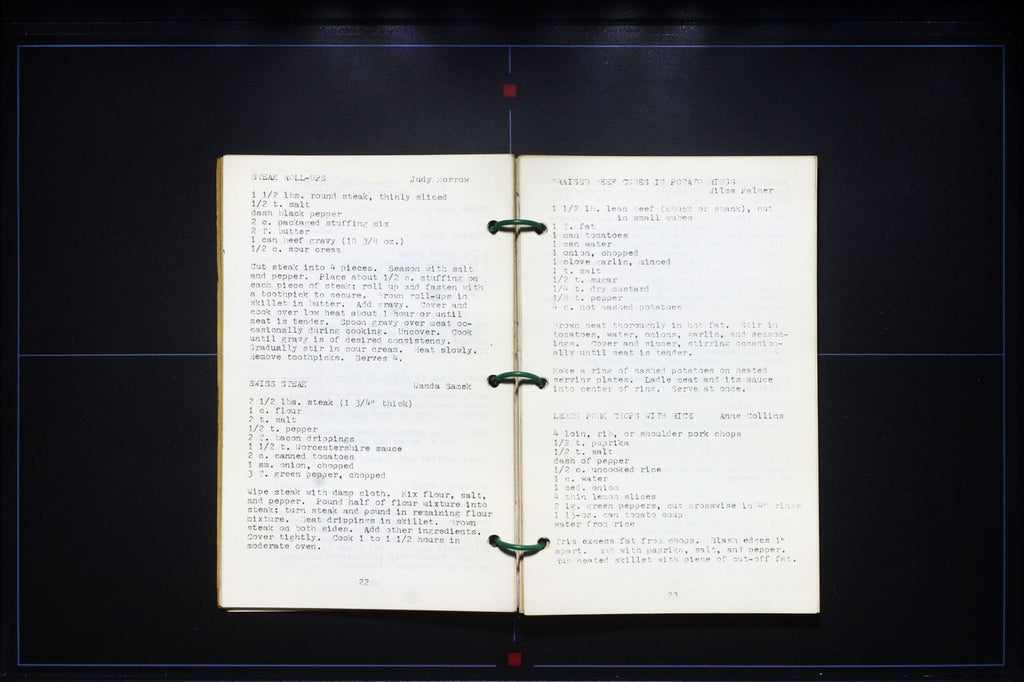 STEAK ROLL-UPS Judy Morrow
1 1/2 lbs. round steak, thinly sliced
1/2 t. salt
dash black pepper
2 c. packaged stuffing mix
2 T. butter
1 can beef gravy (10 3/4 oz.)
1/2 c. sour cream
Cut steak into 4 pieces. Season with salt
and pepper. Place about 1/2 c. stuffing on
each piece of steak; roll up and fasten with
a toothpick to secure. Brown roll-ups in
skillet in butter. Add gravy. Cover and
cook over low heat about 1 hour or until
meat is tender. Spoon gravy over meat oc-
casionally during cooking. Uncover. Cook
until gravy is of desired consistency.
Gradually stir in sour cream. Heat slowly.
Remove toothpicks. Serves 4.
SWISS STEAK Wanda Samek
2 1/2 lbs. steak (1 3/4" thick)
1 c. flour
2 t. salt
1/2 t. pepper
2 T. bacon drippings
1 1/2 t. Worcestershire sauce
2 c. canned tomatoes
1 sm. onion, chopped
3 T. green pepper, chopped
Wipe steak with damp cloth. Mix flour, salt,
and pepper. Pound half of flour mixture into
steak; turn steak and pound in remaining flour
mixture. Heat drippings in skillet. Brown
steak on both sides. Add other ingredients.
Cover tightly. Cook 1 to 1 1/2 hours in
moderate oven.
22
BRAISED BEEF CUBES IN POTATO RINGS
Wilma Palmer
1 1/2 lb. lean beef (chuck or shank), cut
in small cubes
1 T. fat
1 can tomatoes
1 can water
1 onion, chopped
1 clove garlic, minced
1 t. salt
1/2 t. sugar
1/4 t. dry mustard
1/8 t. pepper
4 c. hot mashed potatoes
Brown meat thoroughly in hot fat. Stir in
tomatoes, water, onions, garlic, and season-
ings. Cover and simmer, stirring occasion-
ally until meat is tender.
Make a ring of mashed potatoes on heated
serving plates. Ladle meat and its sauce
into center of ring. Serve at once.
LEMON PORK CHOPS WITH RICE Anne Collins
4 loin, rib, or shoulder pork chops
1/2 t. paprika
1/2 t. salt
dash of pepper
1/2 c. uncooked rice
1 c. water
1 med. onion
4 thin lemon slices
2 lg. green peppers, cut crosswise in 4" rings
1 15-oz. can tomato soup
water from rice
Trim excess fat from chops. Slash edges 1"
apart. Rub with paprika, salt, and pepper.
Rub heated skillet with piece of cut-off fat.
23